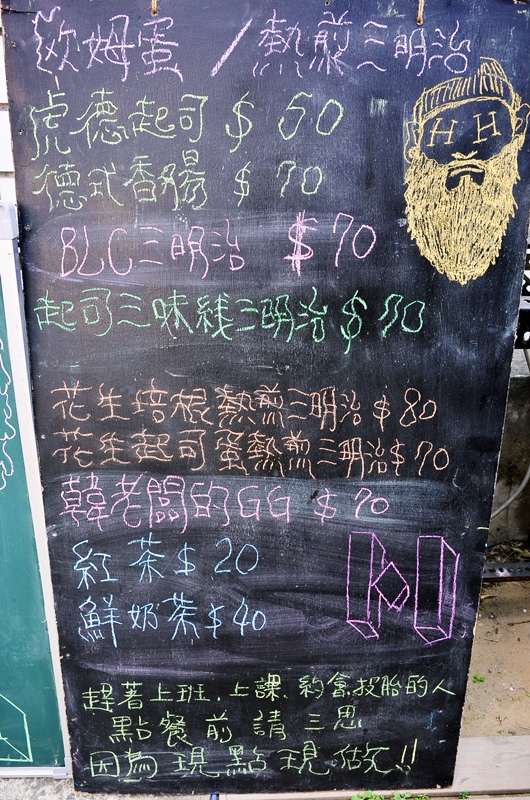 歐姆蛋/熱煎三明治
HH
虎德起司 $50
德式香腸 $70
BLC三明治 $70
起司三味綫三明治 $70
花生培根熱煎三明治 $80
花生起司蛋熱煎三明治$70
韓老闆的GG $70
紅茶$20
鮮奶茶$40
趕著上班、上課、約會投胎的人
點餐前請三思
因為現點現做!!